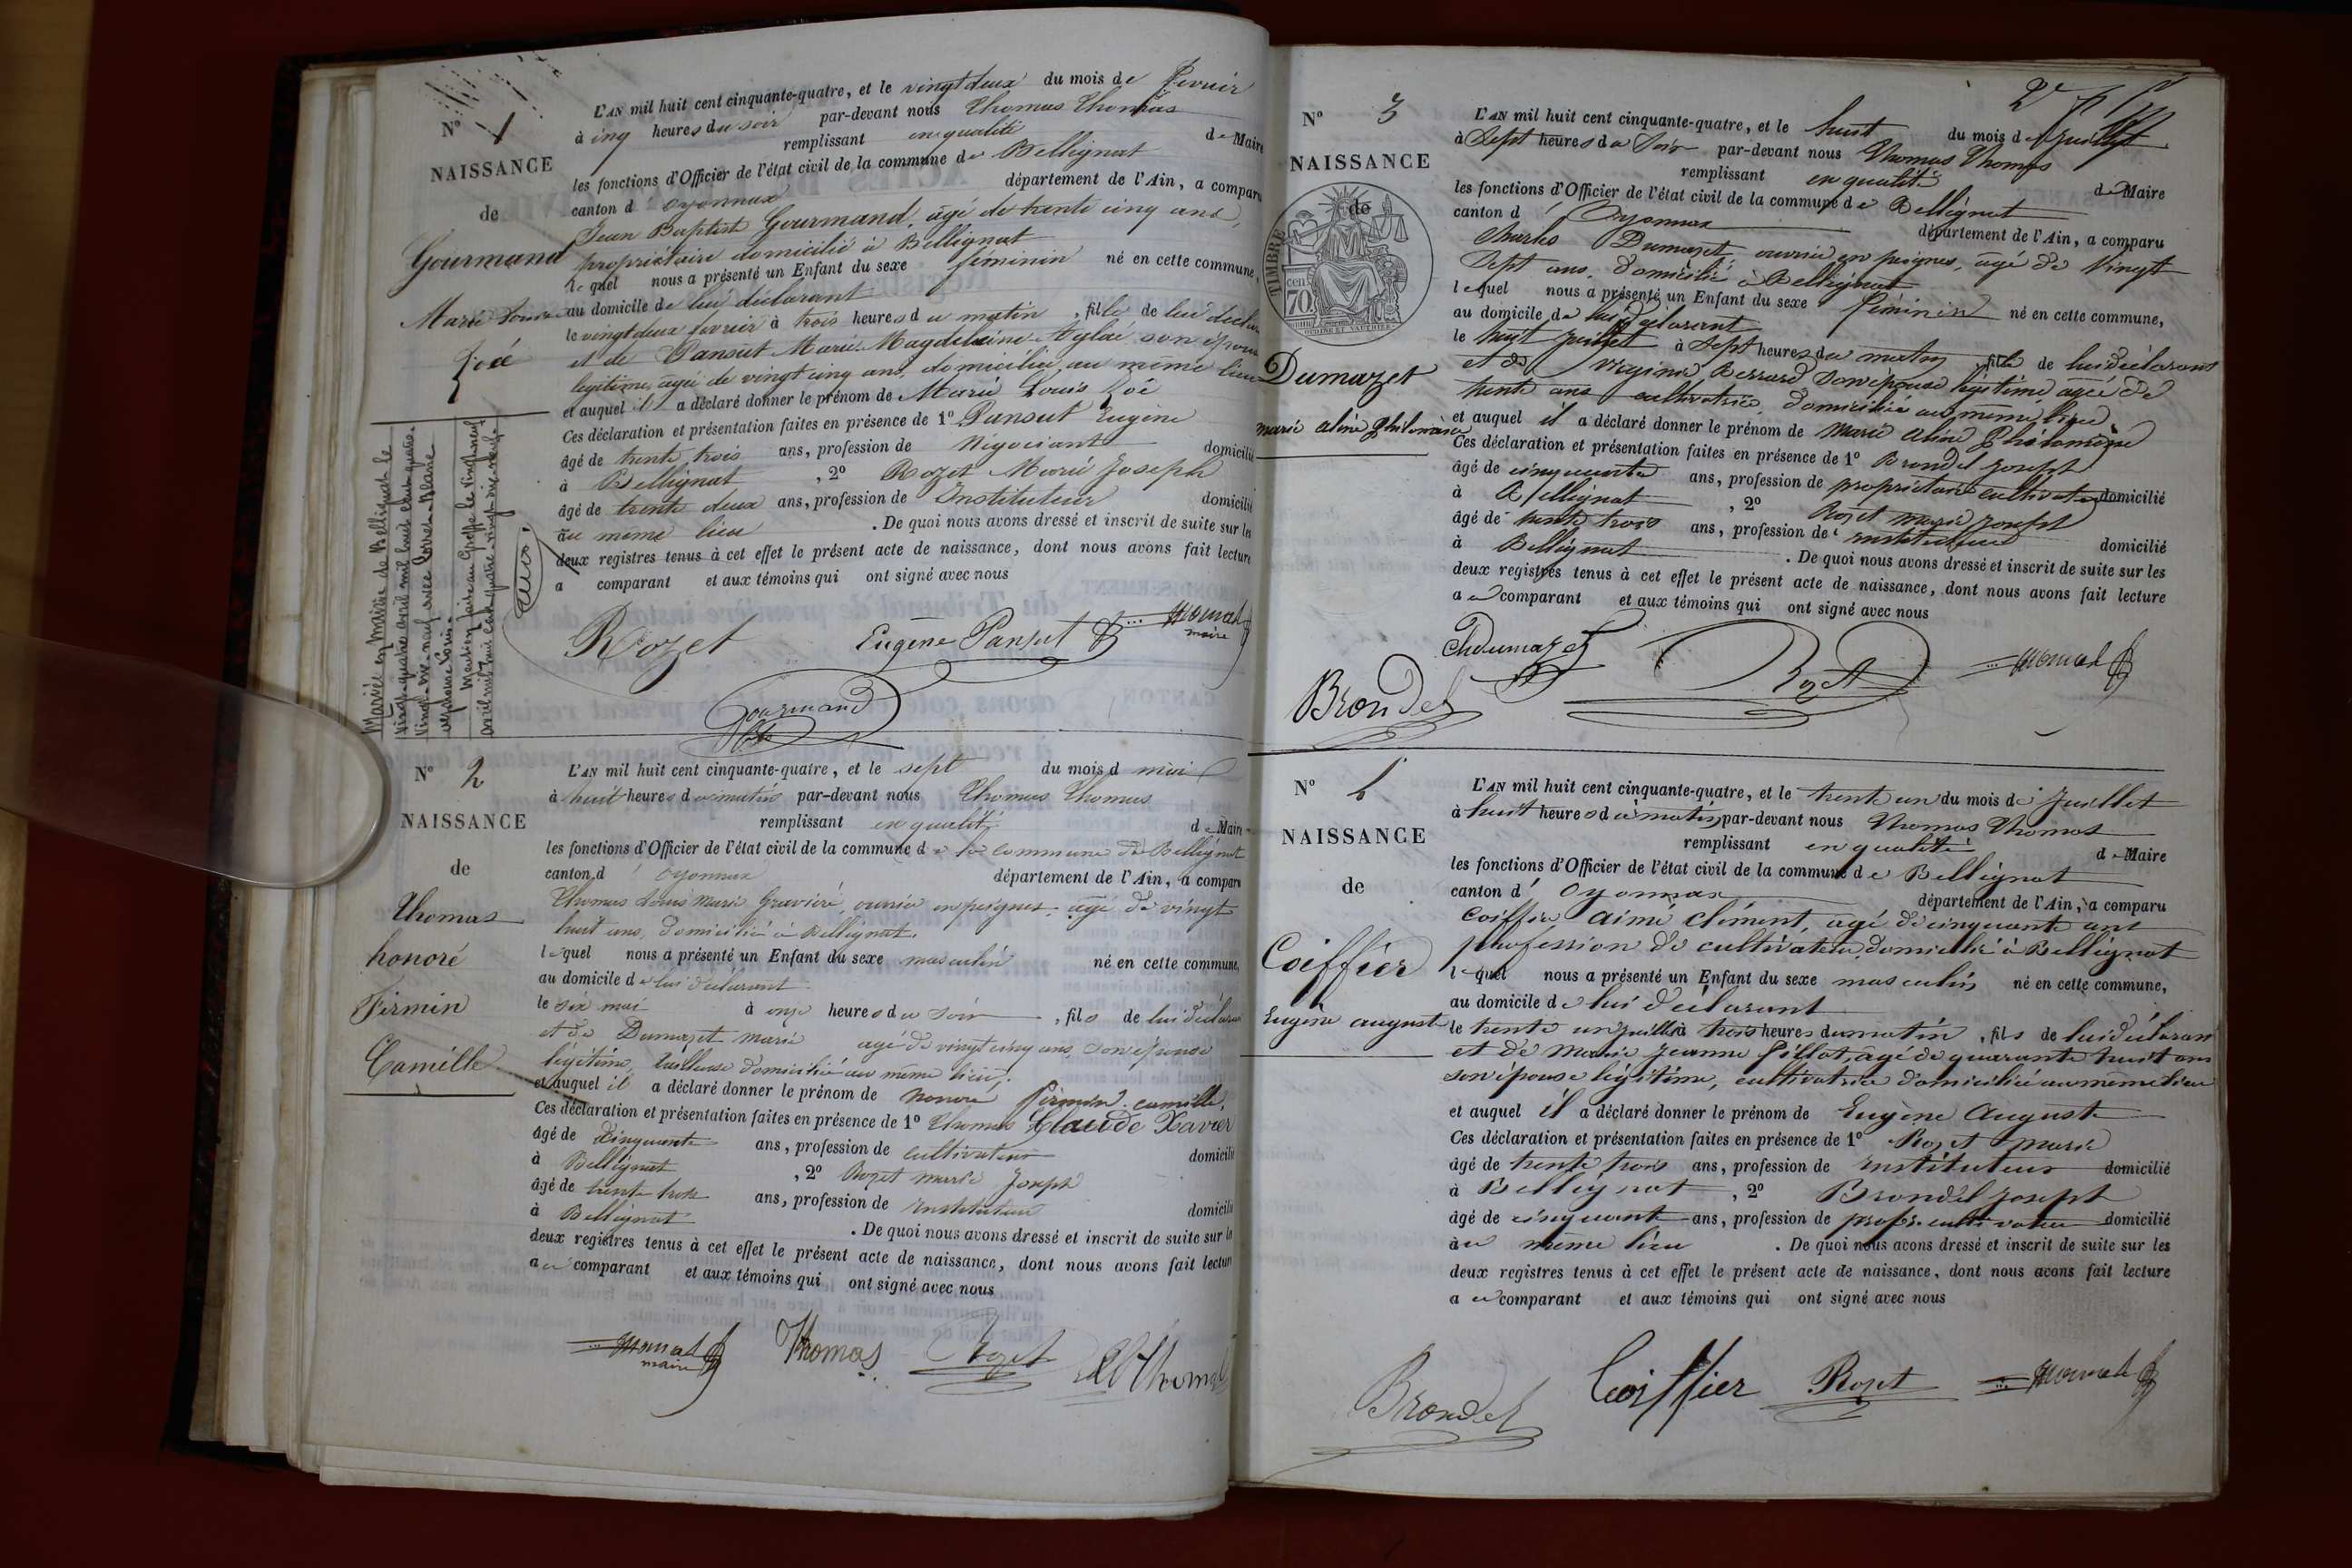 N° 1
NAISSANCE
de
Gourmand
Marie Louise
Zoé
Mariée en mairie de Bellignat le
vingt-quatre avril mil huit cent quatre-
vingt-dix-neuf avec
Mention faite au Greffe le vingt-neuf
avril mil huit cent quatre-vingt-dix-neuf.
L'AN mil huit cent cinquante-quatre, et le vingt deux du mois de fevrier
à inq heures du soir par-devant nous Thomas Thomas
remplissant en qualité de Maire
les fonctions d'Officier de l'état civil de la commune de Bellignat
canton d' oyonnax département de l'Ain, a comparu
Jean Baptiste Gourmand, âgé de trente cinq ans,
propriétaire domicilié à Bellignat
lequel nous a présenté un Enfant du sexe féminin né en cette commune,
au domicile de lui déclarant
le vingt deux fevrier à trois heures du matin, fille de lui décla
et de Pansut Marie Magdeleine Aglaé son épouse
legitime, agée de vingt cinq ans, domiciliée au même lieu
et auquel il a déclaré donner le prénom de Marie Louis Zoé
Ces déclaration et présentation faites en présence de 1° Pansut Eugène
âgé de trente trois ans, profession de Négociant domicilié
à Bellignat, 2° Rozet Marie Joseph
âgé de trente deux ans, profession de Instituteur domicilié
au même lieu. De quoi nous avons dressé et inscrit de suite sur les
deux registres tenus à cet effet le présent acte de naissance, dont nous avons fait lecture
a comparant et aux témoins qui ont signé avec nous
Rozet Eugène Pansut Thomas
maire
Gourmand
N° 2
NAISSANCE
de
Thomas
honoré
Firmin
Camille
L'AN mil huit cent cinquante-quatre, et le sept du mois d mai
à huit heures du matin par-devant nous Thomas Thomas
remplissant en qualité de Maire
les fonctions d'Officier de l'état civil de la commune de la commune de Bellignat
canton d' oyonnax département de l'Ain, a comparu
Thomas Louis Marie Gravieré, ouvrier en peignes, agé de vingt
huit ans, domicilié à Bellignat.
lequel nous a présenté un Enfant du sexe masculin né en cette commune,
au domicile de lui déclarant
le six mai à onze heures du soir, fils de lui déclarant
et de Dumazet marie agé de vingt cinq ans, son épouse
légitime, tailleuse domicilié au même lieu,
et auquel il a déclaré donner le prénom de honoré firmin camille,
Ces déclaration et présentation faites en présence de 1° Thomas Claude Xavier
âgé de cinquante ans, profession de cultivateur domicilié
à Bellignat, 2° Rozet marie Joseph
âgé de trente trois ans, profession de instituteur domicilié
à Bellignat. De quoi nous avons dressé et inscrit de suite sur les
deux registres tenus à cet effet le présent acte de naissance, dont nous avons fait lecture
au comparant et aux témoins qui ont signé avec nous
Thomas
maire
Thomas Rozet Thomas
N° 3
NAISSANCE
de
TIMBRE
cen
70
Dumazet
marie aline philomène
L'AN mil huit cent cinquante-quatre, et le huit du mois de juillet
à Sept heures du Soir par-devant nous Thomas Thomas
remplissant en qualité de Maire
les fonctions d'Officier de l'état civil de la commune de Bellignat
canton d' Oyonnax département de l'Ain, a comparu
Charles Dumazet, ouvrier en peignes, âgé de Vingt
sept ans, domicilié à Bellignat
lequel nous a présenté un Enfant du sexe féminin né en cette commune,
au domicile de lui déclarant
le huit juillet à Sept heures du matin, fille de lui déclarant
et de Virginie Bessard son épouse légitime agée de
trente ans cultivatrice, domiciliée au meme lieu
et auquel il a déclaré donner le prénom de marie aline Philomène
Ces déclaration et présentation faites en présence de 1° Brondel joseph
âgé de cinquante ans, profession de propriétaire cultivateur domicilié
à Bellignat, 2° Rozet marie joseph
âgé de trente trois ans, profession de instituteur domicilié
à Bellignat. De quoi nous avons dressé et inscrit de suite sur les
deux registres tenus à cet effet le présent acte de naissance, dont nous avons fait lecture
au comparant et aux témoins qui ont signé avec nous
Ch Dumazet Rozet Thomas
Brondel
N°
NAISSANCE
de
Coiffier
Eugène august
L'AN mil huit cent cinquante-quatre, et le trente un du mois de juillet
à huit heures du matin par-devant nous Thomas Thomas
remplissant en qualité de Maire
les fonctions d'Officier de l'état civil de la commune de Bellignat
canton d' Oyonnax département de l'Ain, a comparu
Coiffier aimé clément, agé de cinquante ans
profession de cultivateur, domicilié à Bellignat
lequel nous a présenté un Enfant du sexe masculin né en cette commune,
au domicile de lui déclarant
le trente un juillet à trois heures du matin, fils de lui déclarant
et de marie jeanne Pillot, âgé de quarante huit ans
son épouse légitime, cultivatrice domiciliée au même lieu
et auquel il a déclaré donner le prénom de Eugène August
Ces déclaration et présentation faites en présence de 1° Rozet marie
âgé de trente trois ans, profession de instituteur domicilié
à Bellignat, 2° Brondel joseph
âgé de cinquante ans, profession de propr. cultivateur domicilié
au même lieu. De quoi nous avons dressé et inscrit de suite sur les
deux registres tenus à cet effet le présent acte de naissance, dont nous avons fait lecture
au comparant et aux témoins qui ont signé avec nous
Brondel Coiffier Rozet Thomas